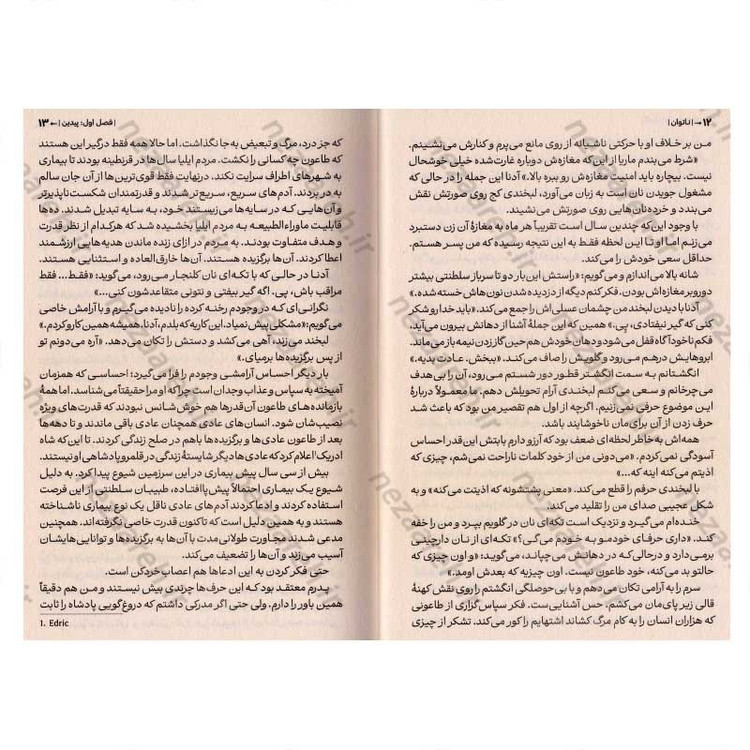 ۱۲ →| ناتوان |
من بر خلاف او با حرکتی ناشیانه از روی مانع می‌پرم و کنارش می‌نشینم.
«شرط می‌بندم ماریا از این‌که مغازه‌ش دوباره غارت‌شده خیلی خوشحال
نیست. بیچاره باید امنیت مغازه‌ش رو ببره بالا.» آدنا این جمله را در حالی که
مشغول جویدن نان است به زبان می‌آورد، لبخندی کج روی صورتش نقش
می‌بندد و خرده‌نان‌هایی روی صورتش می‌نشیند.
با وجود این‌که چندین سال است تقریباً هر ماه به مغازهٔ آن زن دستبرد
می‌زنم اما او تا این لحظه فقط به این نتیجه رسیده که من پسر هستم.
حداقل سعی خودش را می‌کند.
شانه بالا می‌اندازم و می‌گویم: «راستش این‌بار دو تا سرباز سلطنتی بیشتر
دوروبر مغازه‌ش بودن. فکر کنم دیگه از دزدیده شدن نون‌هاش خسته شده.»
آدنا با دیدن لبخند من چشمان عسلی‌اش را جمع می‌کند. «باید خدا رو شکر
کنی که گیر نیفتادی، پی.» همین که این جملهٔ آشنا از دهانش بیرون می‌آید،
فکم ناخودآگاه قفل می‌شود و دهان خودش هم حین گاز زدن نیمه‌باز می‌ماند.
ابروهایش درهم می‌رود و گلویش را صاف می‌کند. «ببخش. عادت بدیه.»
انگشتانم به سمت انگشتر قطور دور شستم می‌رود، آن را بی‌هدف
می‌چرخانم و سعی می‌کنم لبخندی آرام تحویلش دهم. ما معمولاً دربارهٔ
این موضوع حرفی نمی‌زنیم. اگرچه از اول هم تقصیر من بود که باعث شد
حرف زدن از آن برای‌مان ناخوشایند باشد.
همه‌اش به‌خاطر لحظه‌ای ضعف بود که آرزو دارم بابتش این‌قدر احساس
آسودگی نمی‌کردم. «می‌دونی من از خود کلمات ناراحت نمی‌شم، چیزی که
اذیتم می‌کنه اینه که...»
با لبخندی حرفم را قطع می‌کند. «معنی پشتشونه که اذیتت می‌کنه» و به
شکل عجیبی صدای من را تقلید می‌کند.
خنده‌ام می‌گیرد و نزدیک است تکه‌ای نان در گلویم بپرد و من را خفه
کند. «داری حرفای خودمو به خودم می‌گی؟» تکه‌ای از نان دارچینی
برمی‌دارد و درحالی‌که در دهانش می‌چپاند، می‌گوید: «و اون چیزی که
حالتو بد می‌کنه، خود طاعون نیست. اون چیزیه که بعدش اومد.»
سرم را به آرامی تکان می‌دهم و با بی‌حوصلگی انگشتم را روی نقش کهنهٔ
قالی زیر پای‌مان می‌کشم. حس آشنایی‌ست. فکر سپاس‌گزاری از طاعونی
که هزاران انسان را به کام مرگ کشاند اشتهایم را کور می‌کند. تشکر از چیزی
| فصل اول: پیدین |← ۱۳
که جز درد، مرگ و تبعیض به جا نگذاشت. اما حالا همه فقط درگیر این هستند
که طاعون چه کسانی را نکشت. مردم ایلیا سال‌ها در قرنطینه بودند تا بیماری
به شهرهای اطراف سرایت نکند. درنهایت فقط قوی‌ترین‌ها از آن جان سالم
به در بردند. آدم‌های سریع، سریع‌تر شدند و قدرتمندان شکست‌ناپذیرتر
و آن‌هایی که در سایه‌ها می‌زیستند خود، به سایه تبدیل شدند. ده‌ها
قابلیت ماوراءالطبیعه به مردم ایلیا بخشیده شد که هرکدام از نظر قدرت
و هدف متفاوت بودند. به مردم در ازای زنده ماندن هدیه‌هایی ارزشمند
اعطا کردند. آن‌ها برگزیده هستند. آن‌ها خارق‌العاده و استثنایی هستند.
آدنا در حالی که با تکه‌ای نان کلنجار می‌رود، می‌گوید: «فقط... فقط
مراقب باش، پی. اگه گیر بیفتی و نتونی متقاعدشون کنی...»
نگرانی‌ای که در وجودم رخنه کرده را نادیده می‌گیرم و با آرامش خاصی
می‌گویم: «مشکلی پیش نمیاد. این کاریه که بلدم، آدنا. همیشه همین کارو کردم.»
لبخند می‌زند، آهی می‌کشد و دستش را تکان می‌دهد. «آره می‌دونم تو
از پس برگزیده‌ها برمیای.»
بار دیگر احساس آرامشی وجودم را فرا می‌گیرد؛ احساسی که همزمان
آمیخته به سپاس و عذاب وجدان است چرا که او مرا حقیقتاً می‌شناسد. اما همهٔ
بازمانده‌های طاعون آن‌قدرها هم خوش‌شانس نبودند که قدرت‌های ویژه
نصیب‌شان شود. انسان‌های عادی همچنان عادی باقی ماندند و تا دهه‌ها
بعد از طاعون عادی‌ها و برگزیده‌ها باهم در صلح زندگی کردند. تا این‌که شاه
ادریک¹ اعلام کرد که عادی‌ها دیگر شایستهٔ زندگی در قلمرو پادشاهی او نیستند.
بیش از سی سال پیش بیماری در این سرزمین شیوع پیدا کرد. به دلیل
شیوع یک بیماری احتمالاً پیش‌پاافتاده، طبیبان سلطنتی از این فرصت
استفاده کردند و ادعا کردند آدم‌های عادی ناقل یک نوع بیماری ناشناخته
هستند و به همین دلیل است که تاکنون قدرت خاصی نگرفته‌اند. همچنین
مدعی شدند مجاورت طولانی‌مدت با آن‌ها به برگزیده‌ها و توانایی‌هایشان
آسیب می‌زند و آن‌ها را تضعیف می‌کند.
حتی فکر کردن به این ادعاها هم اعصاب خردکن است.
پدرم معتقد بود که این حرف‌ها چرندی بیش نیستند و من هم دقیقاً
همین باور را دارم. ولی حتی اگر مدرکی داشتم که دروغ‌گویی پادشاه را ثابت
1. Edric